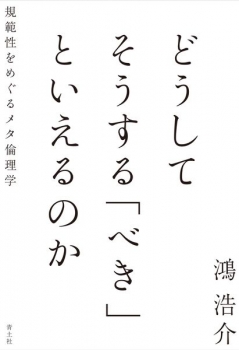 どうして
そうする「べき」
といえるのか
規範性をめぐるメタ倫理学
鴻 浩介
青土社